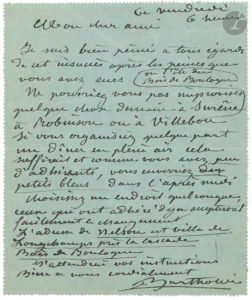 Ce vendredi
6 heures
Mon cher ami
Je suis bien peiné à tous égards
de cet insuccès après les peines que
vous avez eues
ou l'île du
Bois de Boulogne
Ne pourriez vous pas improviser
quelque chose demain à Suresne
à Robinson ou à Villebon
Si vous organisiez quelque part
un dîner en plein air cela
suffirait et comme vous avez peu
d'adhérents, vous enverrez des
petits bleus dans l'après midi
Choisissez un endroit quelconque
ceux qui ont adhéré déjà accepteront
facilement le changement
L'adresse de Nelson est villa de
Longchamps près la cascade
Bois de Boulogne
J'attendrai vos instructions
Bien à vous cordialement
Bartholdi